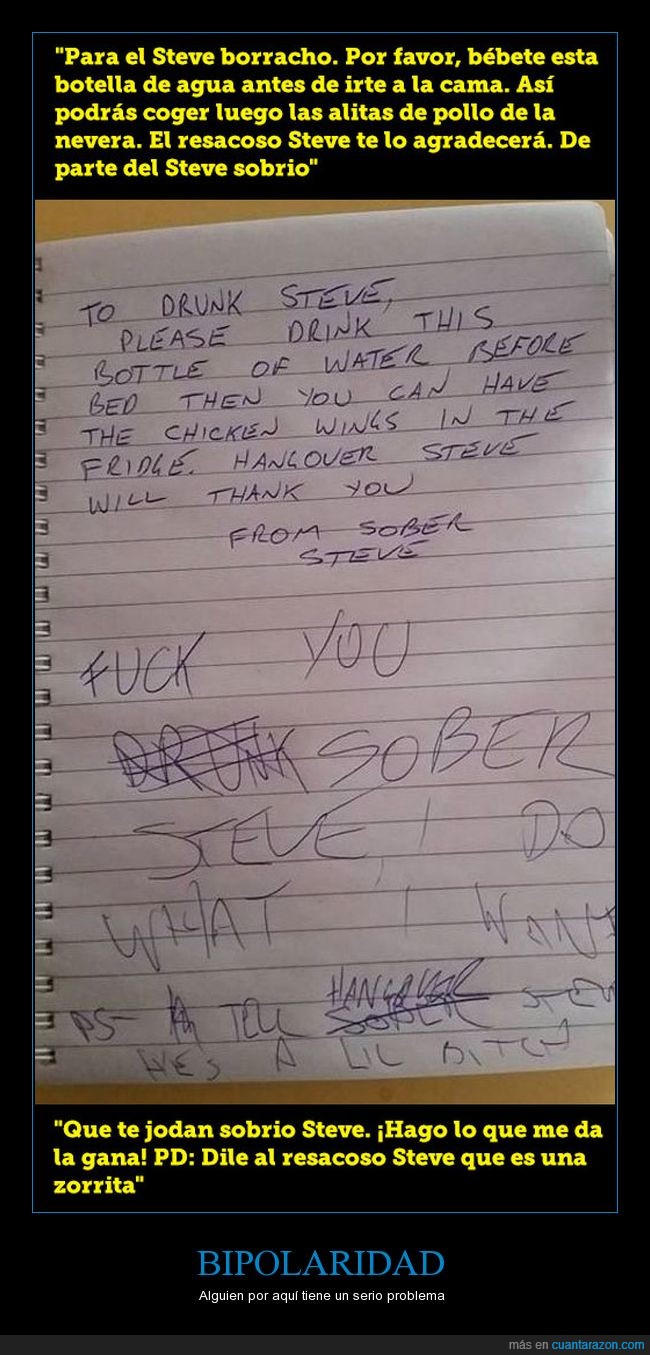 "Para el Steve borracho. Por favor, bébete esta
botella de agua antes de irte a la cama. Así
podrás coger luego las alitas de pollo de la
nevera. El resacoso Steve te lo agradecerá. De
parte del Steve sobrio"
TO DRUNK STEVE,
PLEASE DRINK THIS
BOTTLE OF WATER BEFORE
BED THEN YOU CAN HAVE
THE CHICKEN WINGS IN THE
FRIDGE. HANGOVER STEVE
WILL THANK YOU
FROM SOBER
STEVE
FUCK YOU
DRUNK SOBER
STEVE, I DO
WHAT I WANT
HANGOVER
PS- TELL SOBER STEV
HES A LIL BITCH
"Que te jodan sobrio Steve. ¡Hago lo que me da
la gana! PD: Dile al resacoso Steve que es una
zorrita"
BIPOLARIDAD
Alguien por aquí tiene un serio problema
más en cuantarazon.com